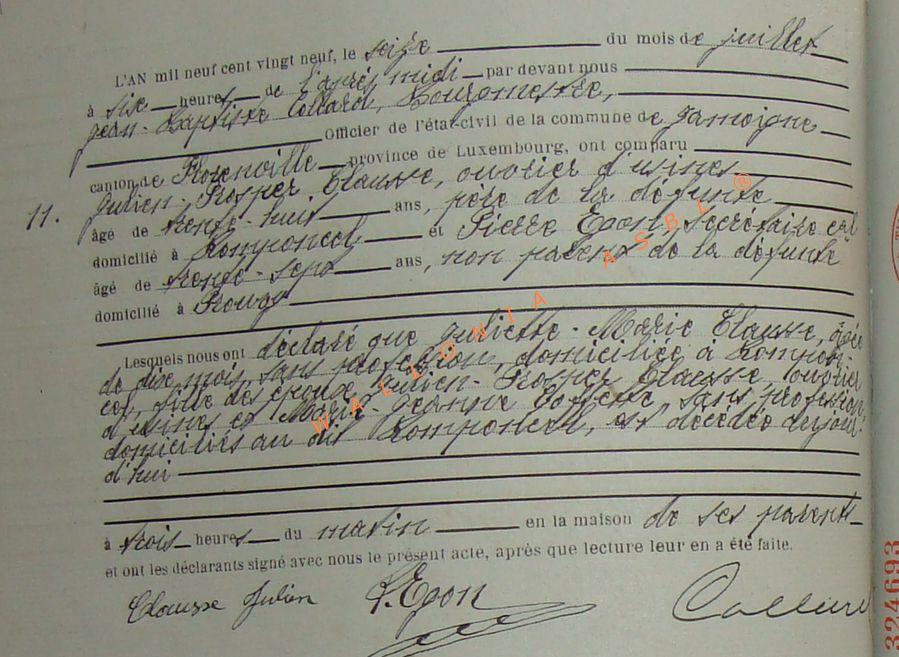 L'AN mil neuf cent vingt neuf, le seize du mois de juillet
à six heures de l'après midi par devant nous
Jean-Baptiste Collard, Bourgmestre,
Officier de l'état-civil de la commune de Jamoigne
canton de Florenville province de Luxembourg, ont comparu
11. Julien-Prosper Clausse, ouvrier d'usines
âgé de trente-huit ans, père de la défunte
domicilié à Romponcel et Pierre Egon, secrétaire cal
âgé de trente-sept ans, non parent de la défunte
domicilié à Prouvy
Lesquels nous ont déclaré que Juliette-Marie Clausse, âgée
de dix mois, sans profession, domiciliée à Rompon-
cel, fille des époux Julien-Prosper Clausse, ouvrier
d'usines et Marie-Jeanne sans profession,
domiciliés au dit Romponcel, est décédée aujour-
d'hui
à trois heures du matin en la maison de ses parents
et ont les déclarants signé avec nous le présent acte, après que lecture leur en a été faite.
Clausse Julien P. Egon Collard
324693
WALLONIA ASBL ®